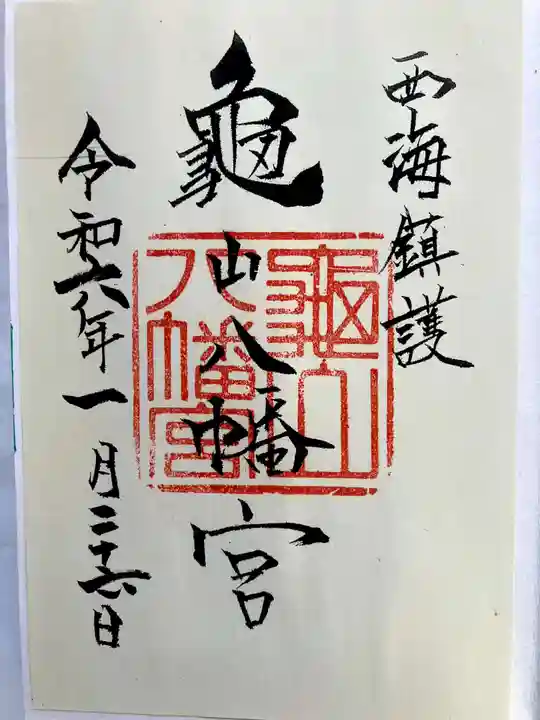 西海鎮護
龜山八幡宮
龜山八幡宮
令和六年一月二十六日